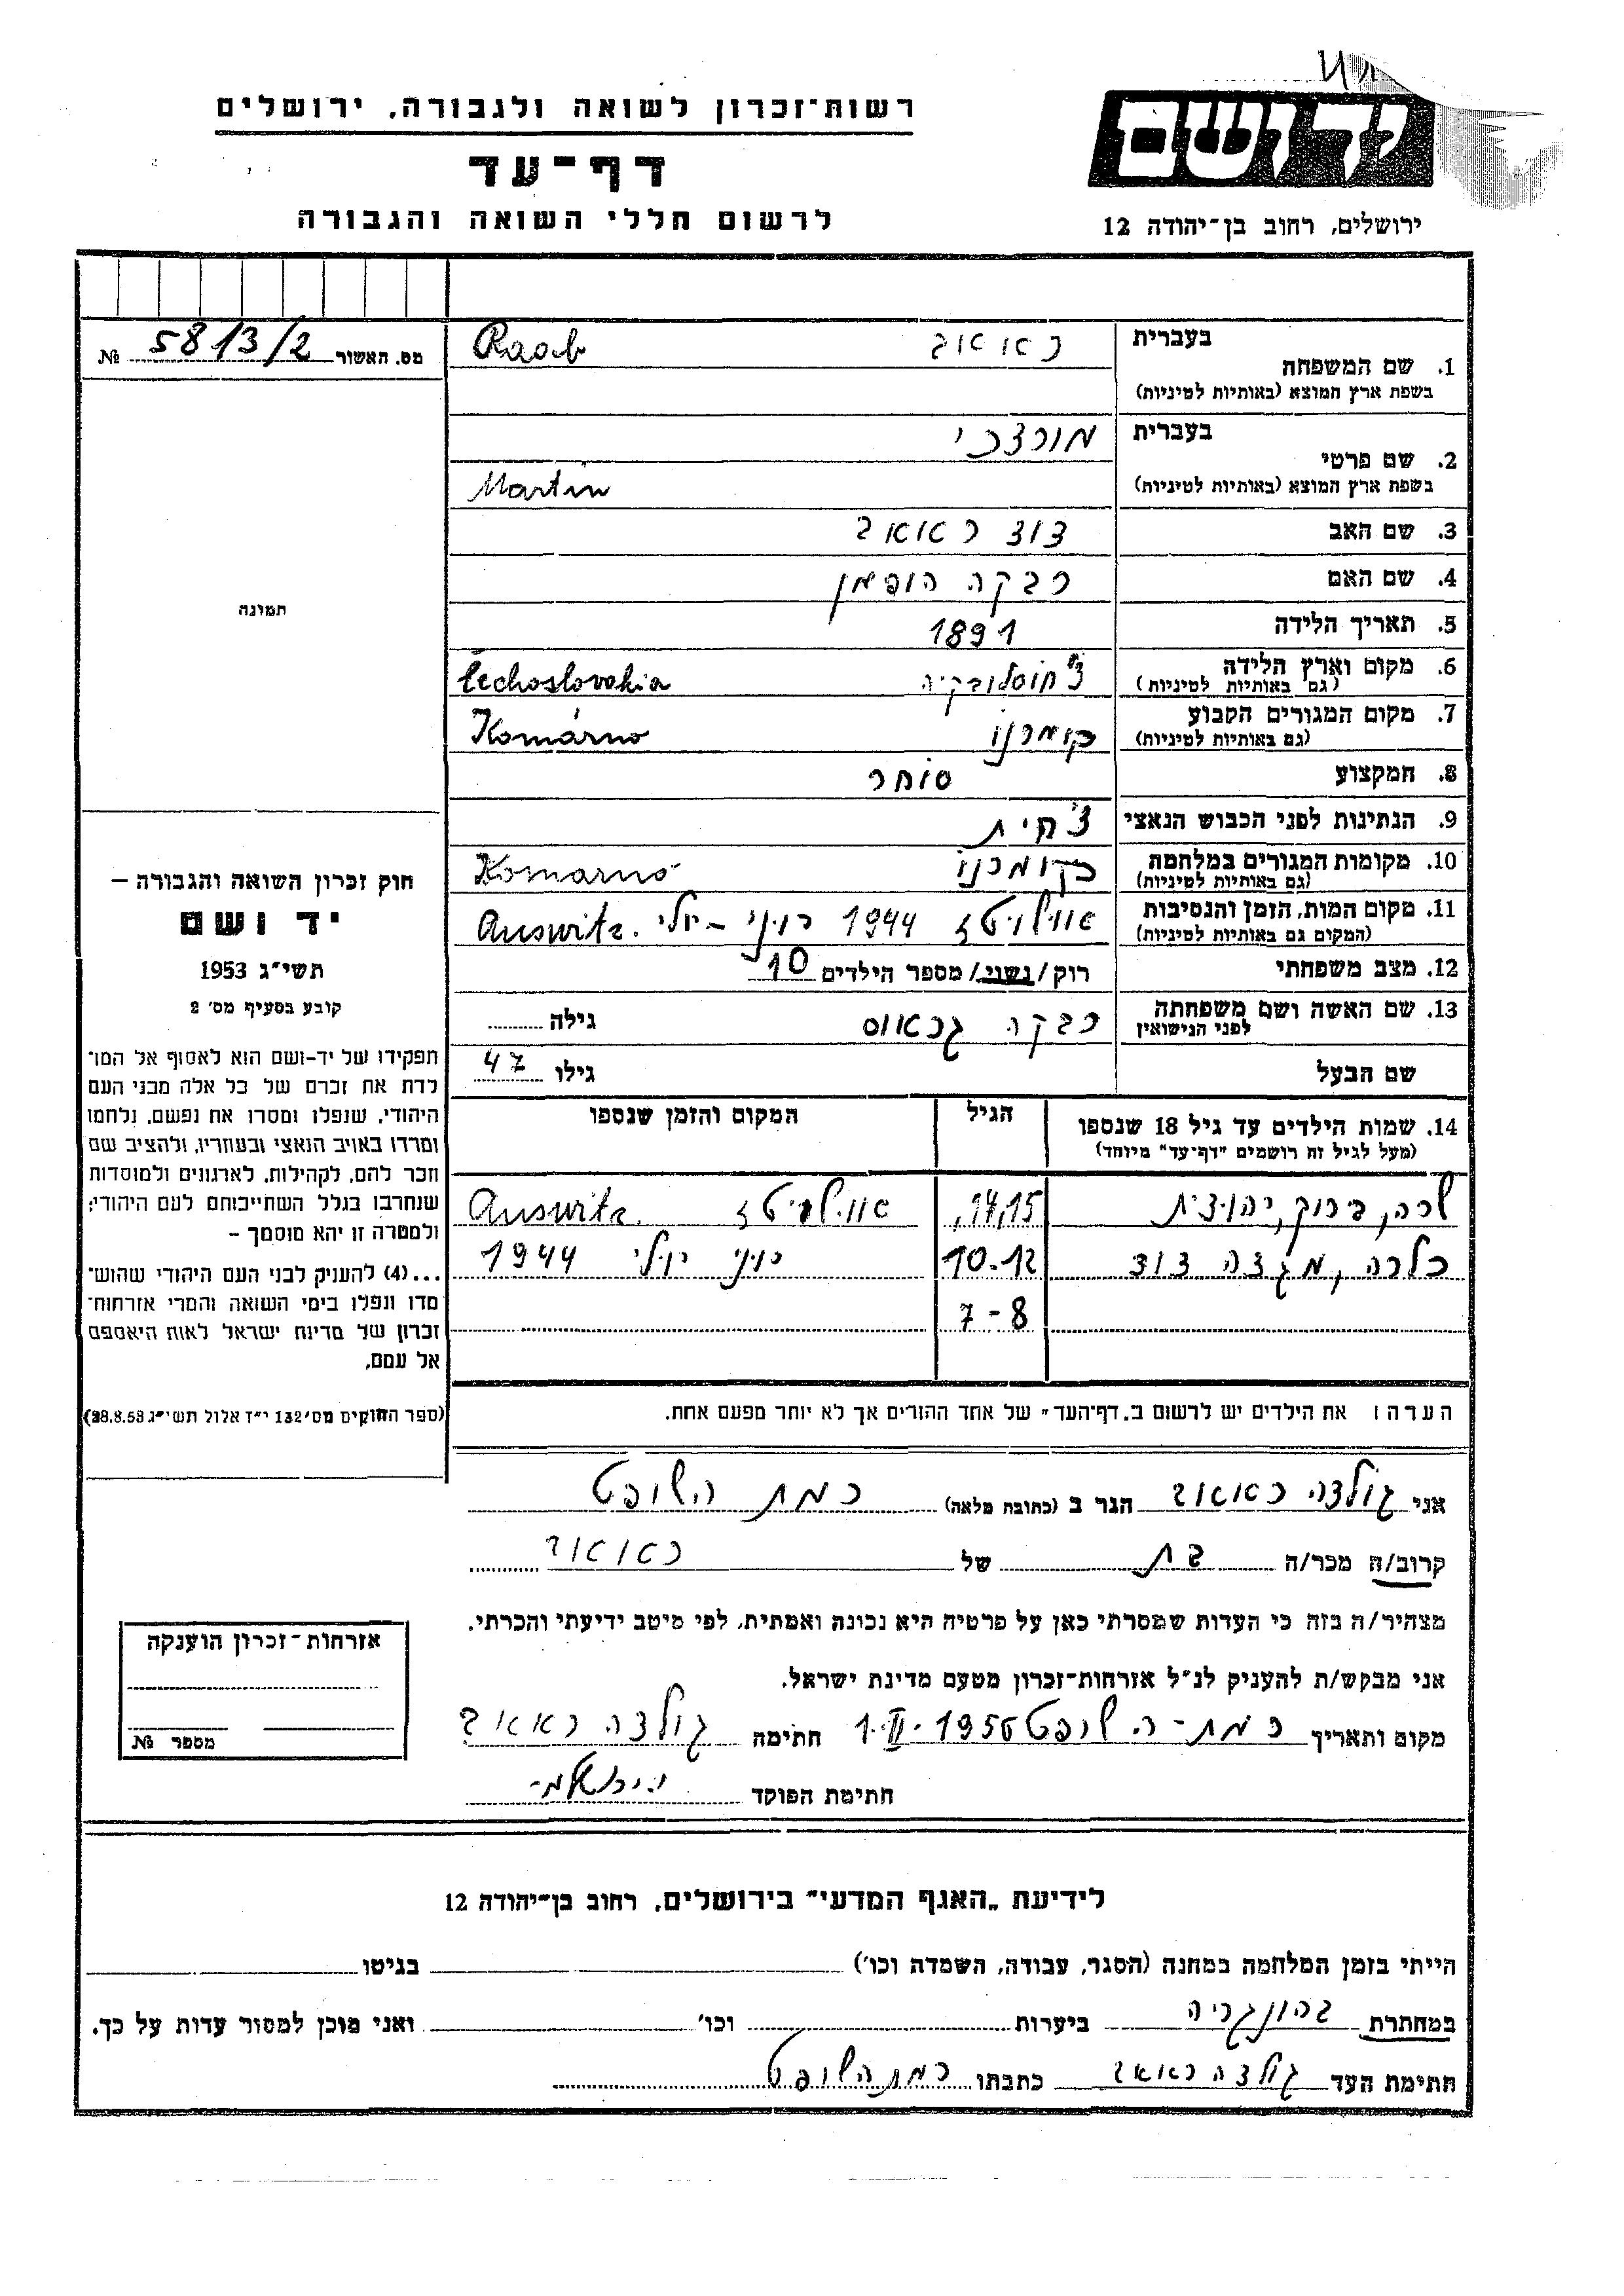 רשות־זכרון לשואה ולגבורה, ירושלים
דף־עד
לרשום חללי השואה והגבורה
יד ושם
ירושלים, רחוב בן־יהודה 12
מס. האשור 5813/2 №
תמונה
חוק זכרון השואה והגבורה —
יד ושם
תשי״ג 1953
קובע בסעיף מס׳ 2
תפקידו של יד-ושם הוא לאסוף אל המו־
לדת את זכרם של כל אלה מבני העם
היהודי, שנפלו ומסרו את נפשם, נלחמו
ומרדו באויב הנאצי ובעוזריו, ולהציב שם
וזכר להם, לקהילות, לארגונים ולמוסדות
שנחרבו בגלל השתייכותם לעם היהודי;
ולמטרה זו יהא מוסמך –
...(4) להעניק לבני העם היהודי שהוש־
מדו ונפלו בימי השואה והמרי אזרחות־
זכרון של מדינת ישראל לאות היאספם
אל עמם.
(ספר החוקים מס׳ 132 י״ז אלול תשי״ג 28.8.53)
בעברית ראאב Raab
1. שם המשפחה
בשפת ארץ המוצא (באותיות לטיניות)
בעברית מורדכי
2. שם פרטי
בשפת ארץ המוצא (באותיות לטיניות) Martin
3. שם האב דוד ראאב
4. שם האם רבקה הופמן
5. תאריך הלידה 1891
6. מקום וארץ הלידה צ׳חוסלובקיה Čechoslovakia
(גם באותיות לטיניות)
7. מקום המגורים הקבוע קומרנו Komárno
(גם באותיות לטיניות)
8. המקצוע סוחר
9. הנתינות לפני הכבוש הנאצי צ׳חית
10. מקומות המגורים במלחמה בקומרנו Komárno
(גם באותיות לטיניות)
11. מקום המות, הזמן והנסיבות אושויטז 1944 יוני – יולי. Auswitz
(המקום גם באותיות לטיניות)
12. מצב משפחתי רוק/נשוי/ מספר הילדים 10
13. שם האשה ושם משפחתה רבקה גראוס גילה
לפני הנישואין
שם הבעל גילו 47
14. שמות הילדים עד גיל 18 שנספו הגיל המקום והזמן שנספו
(מעל לגיל זה רושמים "דף־עד" מיוחד)
שרה, ברוך, יהודית 14,15, אושויטז Auswitz
כלרה, מגדה דוד 10-12 יוני יולי 1944
7-8
הערה: את הילדים יש לרשום ב„דף־העד" של אחד ההורים אך לא יותר מפעם אחת.
אני גולדה ראאב הגר ב (כתובת מלאה) רמת השופט
קרוב/ה מכר/ה בת של ראאב
מצהיר/ה בזה כי העדות שמסרתי כאן על פרטיה היא נכונה ואמתית, לפי מיטב ידיעתי והכרתי.
אני מבקש/ת להעניק לנ״ל אזרחות־זכרון מטעם מדינת ישראל.
מקום ותאריך רמת-השופט 1.II.1956 חתימה גולדה ראאב
חתימת הפוקד
אזרחות־זכרון הוענקה
מספר №
לידיעת „האגף המדעי" בירושלים, רחוב בן־יהודה 12
הייתי בזמן המלחמה במחנה (הסגר, עבודה, השמדה וכו׳) בגיטו
במחתרת בהונגריה ביערות וכו׳ ואני מוכן למסור עדות על כך.
חתימת העד גולדה ראאב כתבתו רמת השופט